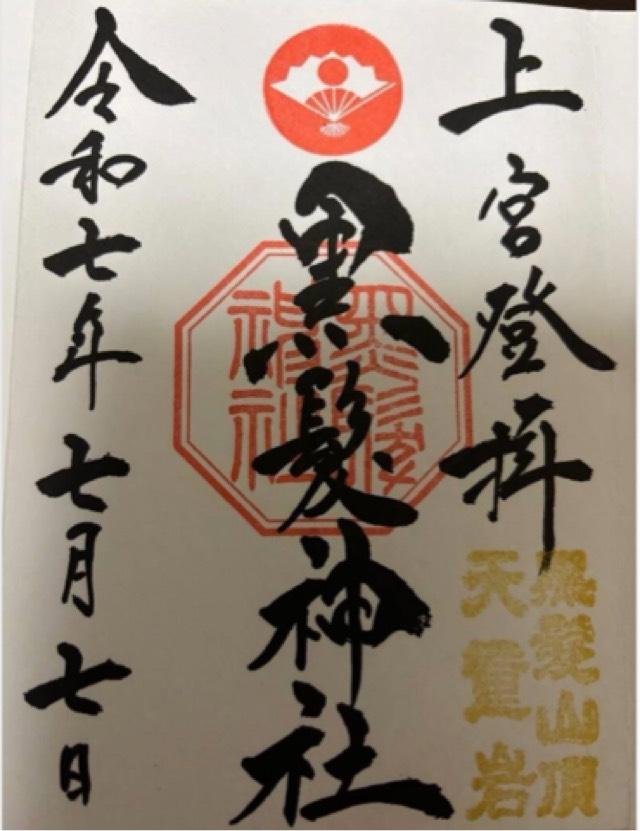 上宮登拝
黒髪山頂
天童岩
黒髪神社
黒髪神社
令和七年七月七日